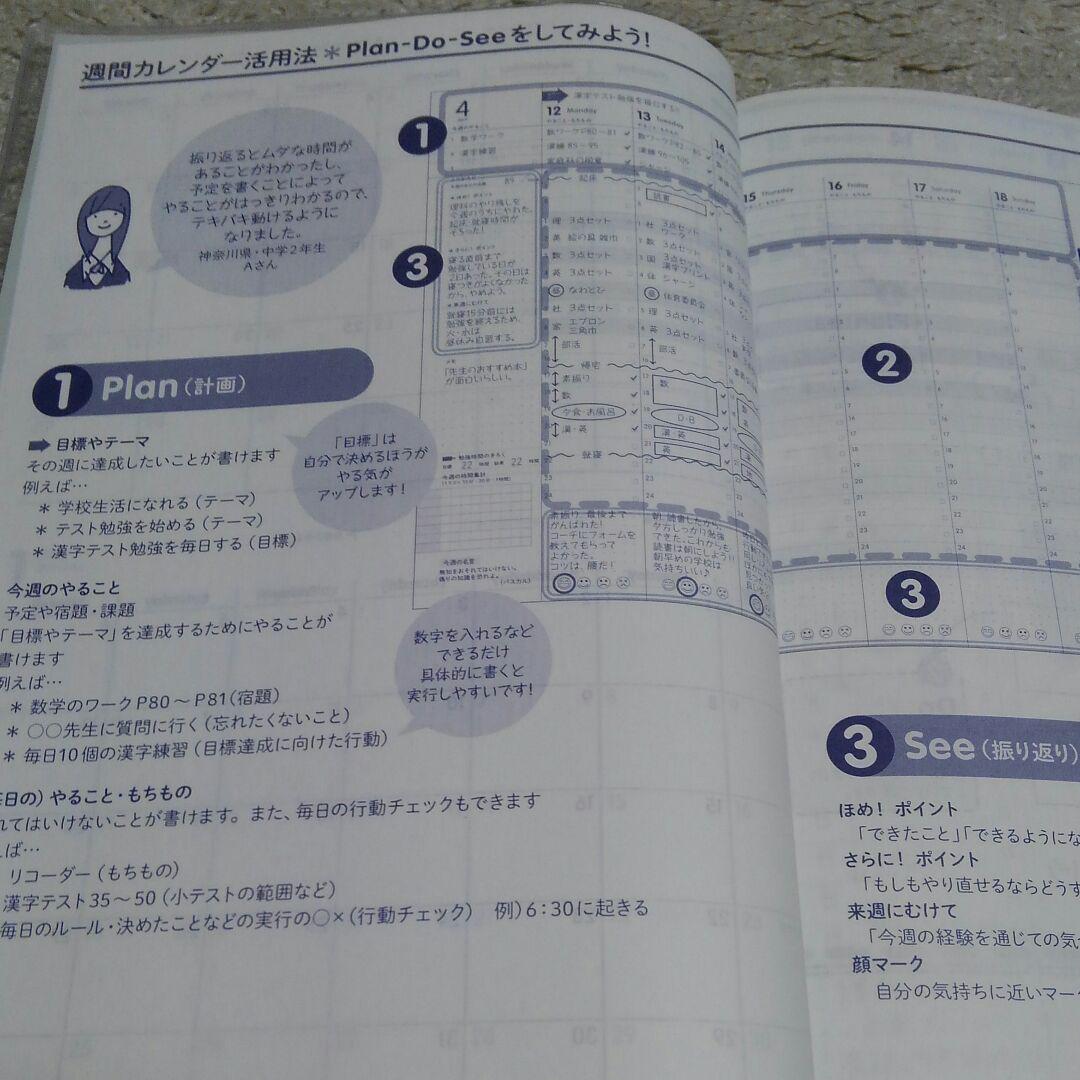 週間カレンダー活用法＊Plan-Do-Seeをしてみよう!
振り返るとムダな時間が
あることがわかったし、
予定を書くことによって
やることがはっきりわかるので、
テキパキ動けるように
なりました。
神奈川県・中学2年生
Aさん
1 Plan（計画）
➡ 目標やテーマ
その週に達成したいことが書けます
例えば…
＊ 学校生活になれる（テーマ）
＊ テスト勉強を始める（テーマ）
＊ 漢字テスト勉強を毎日する（目標）
「目標」は
自分で決めるほうが
やる気が
アップします!
今週のやること
予定や宿題・課題
「目標やテーマ」を達成するためにやることが
書けます
例えば…
＊ 数学のワークP80～P81（宿題）
＊ ○○先生に質問に行く（忘れたくないこと）
＊ 毎日10個の漢字練習（目標達成に向けた行動）
数字を入れるなど
できるだけ
具体的に書くと
実行しやすいです!
日の）やること・もちもの
れてはいけないことが書けます。また、毎日の行動チェックもできます
えば…
リコーダー（もちもの）
漢字テスト35～50（小テストの範囲など）
毎日のルール・決めたことなどの実行の○×（行動チェック） 例）6：30に起きる
1
4
数学ワーク
漢字練習
12 Monday
数ワークP80～81
漢練 85～95
13 Tuesday
漢練 96～105
14
3
理科のやり残しを
今週のうちにやれた。
起床・就寝時間が
そろった!
さらに! ポイント
寝る直前まで
勉強している日が
2日あった。その日は
寝つきがよくなかった
から、やめよう。
来週にむけて
就寝15分前には
勉強を終えるため、
火・水は
昼休み自習する。
「先生のおすすめ本」
が面白いらしい。
起床
理 3点セット
英 絵の具 雑巾
数 3点セット
英 3点セット
昼 なわとび
社 3点セット
家 エプロン
三角巾
部活
帰宅
素振り
数
夕食・お風呂
漢・英
就寝
読書
社 3点セット
ワーク
数 3点セット
国 3点セット
漢字プリント
体 ジャージ
昼 体育委員会
理 3点セット
英 3点セット
部活
数
D・B
漢 英
英
22
22
今週の時間集計
今週の名言
無知をおそれてはいけない。
偽りの知識を恐れよ。
（パスカル）
素振り、最後まで
がんばれた!
コーチにフォームを
教えてもらって
よかった。
コツは、腰だ!
朝、読書したから、
夕方しっかり勉強
できた。これからも
読書は朝にしよう!!
朝早めの学校は
気持ちいい♪
15 Thursday
16 Friday
17 Saturday
18 Sunday
2
3
3 See（振り返り）
ほめ! ポイント
「できたこと」「できるようにな
さらに! ポイント
「もしもやり直せるならどうす
来週にむけて
「今週の経験を通じての気づ
顔マーク
自分の気持ちに近いマーク